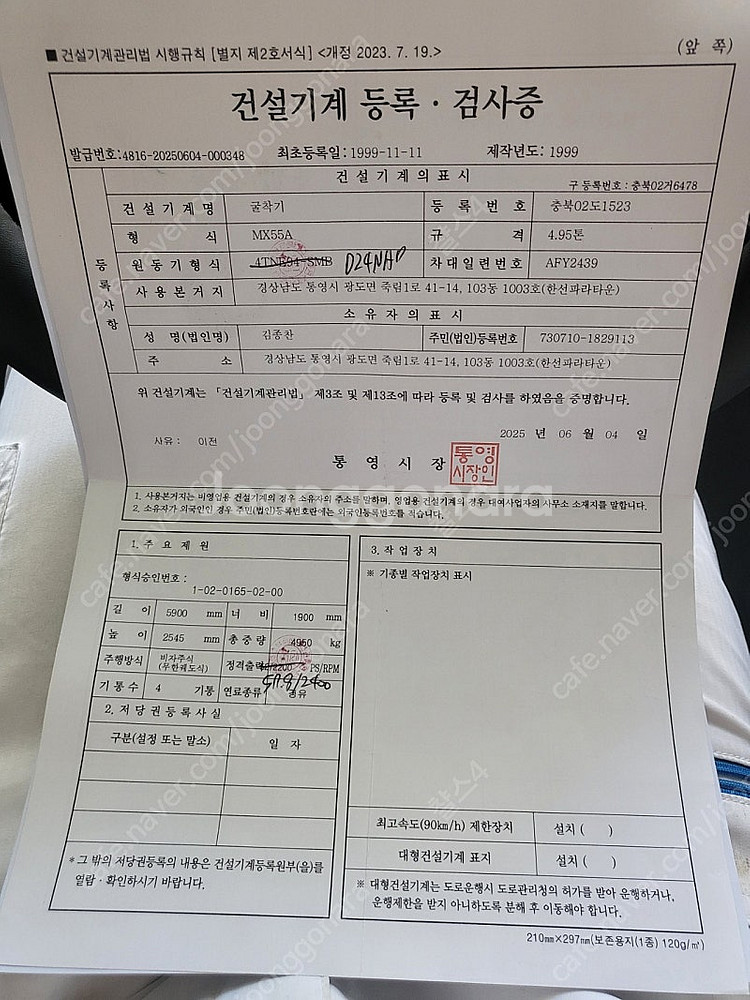 ■ 건설기계관리법 시행규칙 [별지 제2호서식] <개정 2023. 7. 19.>
(앞 쪽)
건설기계 등록 · 검사증
발급번호:4816-20250604-000348 최초등록일:1999-11-11 제작년도: 1999
건설기계의표시 구 등록번호 : 충북02거6478
등록사항
건설기계명 굴착기 등록번호 충북02도1523
형식 MX55A 규격 4.95톤
원동기형식 4TNE94-SMB D24NAP 차대일련번호 AFY2439
사용본거지 경상남도 통영시 광도면 죽림1로 41-14, 103동 1003호(한선파라타운)
소유자의표시
성 명(법인명) 김종찬 주민(법인)등록번호 730710-1829113
주 소 경상남도 통영시 광도면 죽림1로 41-14, 103동 1003호(한선파라타운)
위 건설기계는 「건설기계관리법」 제3조 및 제13조에 따라 등록 및 검사를 하였음을 증명합니다.
사유 : 이전
2025 년 06 월 04 일
통 영 시 장
통영
시장인
1. 사용본거지는 비영업용 건설기계의 경우 소유자의 주소를 말하며, 영업용 건설기계의 경우 대여사업자의 사무소 소재지를 말합니다.
2. 소유자가 외국인인 경우 주민(법인)등록번호란에는 외국인등록번호를 적습니다.
1. 주 요 제 원
형식승인번호 :
1-02-0165-02-00
길 이 5900 mm 너 비 1900 mm
높 이 2545 mm 총중량 4950 kg
주행방식 비자주식(무한궤도식) 정격출력 /2200 PS/RPM
/2400
기통수 4 기통 연료종류 경유
2. 저당권등록사실
구분(설정 또는 말소) 일 자
*그 밖의 저당권등록의 내용은 건설기계등록원부(을)를
열람 · 확인하시기 바랍니다.
3. 작업장치
※ 기종별 작업장치 표시
최고속도(90km/h) 제한장치 설치 ( )
대형건설기계 표지 설치 ( )
※ 대형건설기계는 도로운행시 도로관리청의 허가를 받아 운행하거나,
운행제한을 받지 아니하도록 분해 후 이동해야 합니다.
210mm×297mm(보존용지(1종) 120g/㎡)
joonggonara
cafe.naver.com/joonggonara